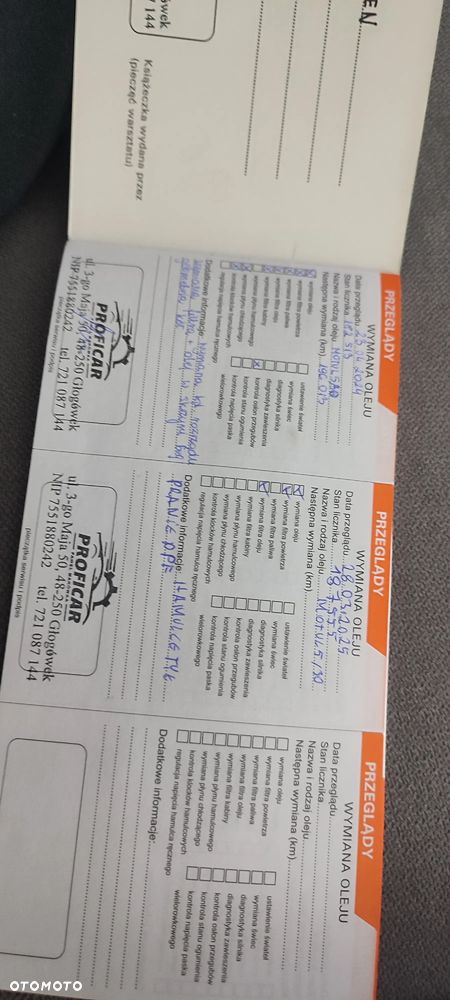 EN
ówek
7 144
Książeczka wydana przez
(pieczęć warsztatu)
PRZEGLĄDY
WYMIANA OLEJU
Data przeglądu 23 04 2024
Stan licznika
Nazwa i rodzaj oleju
Następna wymiana (km)
wymiana oleju
wymiana filtra powietrza
wymiana filtra paliwa
wymiana filtra oleju
wymiana filtra kabiny
wymiana płynu hamulcowego
wymiana płynu chłodzącego
kontrola klocków hamulcowych
regulacja napięcia hamulca ręcznego
ustawienie świateł
wymiana świec
diagnostyka silnika
diagnostyka zawieszenia
kontrola osłon przegubów
kontrola stanu ogumienia
kontrola napięcia paska
wielorowkowego
Dodatkowe informacje: Wymiana
PROFICAR
ul. 3-go Maja 50, 48-250 Głogówek
NIP 7551880242 tel. 721 087 144
pieczątka serwisu i podpis
PRZEGLĄDY
WYMIANA OLEJU
Data przeglądu 28.03.2025
Stan licznika 187575
Nazwa i rodzaj oleju MOTUL 5/30
Następna wymiana (km)
wymiana oleju
wymiana filtra powietrza
wymiana filtra paliwa
wymiana filtra oleju
wymiana filtra kabiny
wymiana płynu hamulcowego
wymiana płynu chłodzącego
kontrola klocków hamulcowych
regulacja napięcia hamulca ręcznego
ustawienie świateł
wymiana świec
diagnostyka silnika
diagnostyka zawieszenia
kontrola osłon przegubów
kontrola stanu ogumienia
kontrola napięcia paska
wielorowkowego
Dodatkowe informacje:
PROFICAR
ul. 3-go Maja 50, 48-250 Głogówek
NIP 7551880242 tel. 721 087 144
pieczątka serwisu i podpis
PRZEGLĄDY
WYMIANA OLEJU
Data przeglądu
Stan licznika
Nazwa i rodzaj oleju
Następna wymiana (km)
wymiana oleju
wymiana filtra powietrza
wymiana filtra paliwa
wymiana filtra oleju
wymiana filtra kabiny
wymiana płynu hamulcowego
wymiana płynu chłodzącego
kontrola klocków hamulcowych
regulacja napięcia hamulca ręcznego
ustawienie świateł
wymiana świec
diagnostyka silnika
diagnostyka zawieszenia
kontrola osłon przegubów
kontrola stanu ogumienia
kontrola napięcia paska
wielorowkowego
Dodatkowe informacje:
OTOMOTO